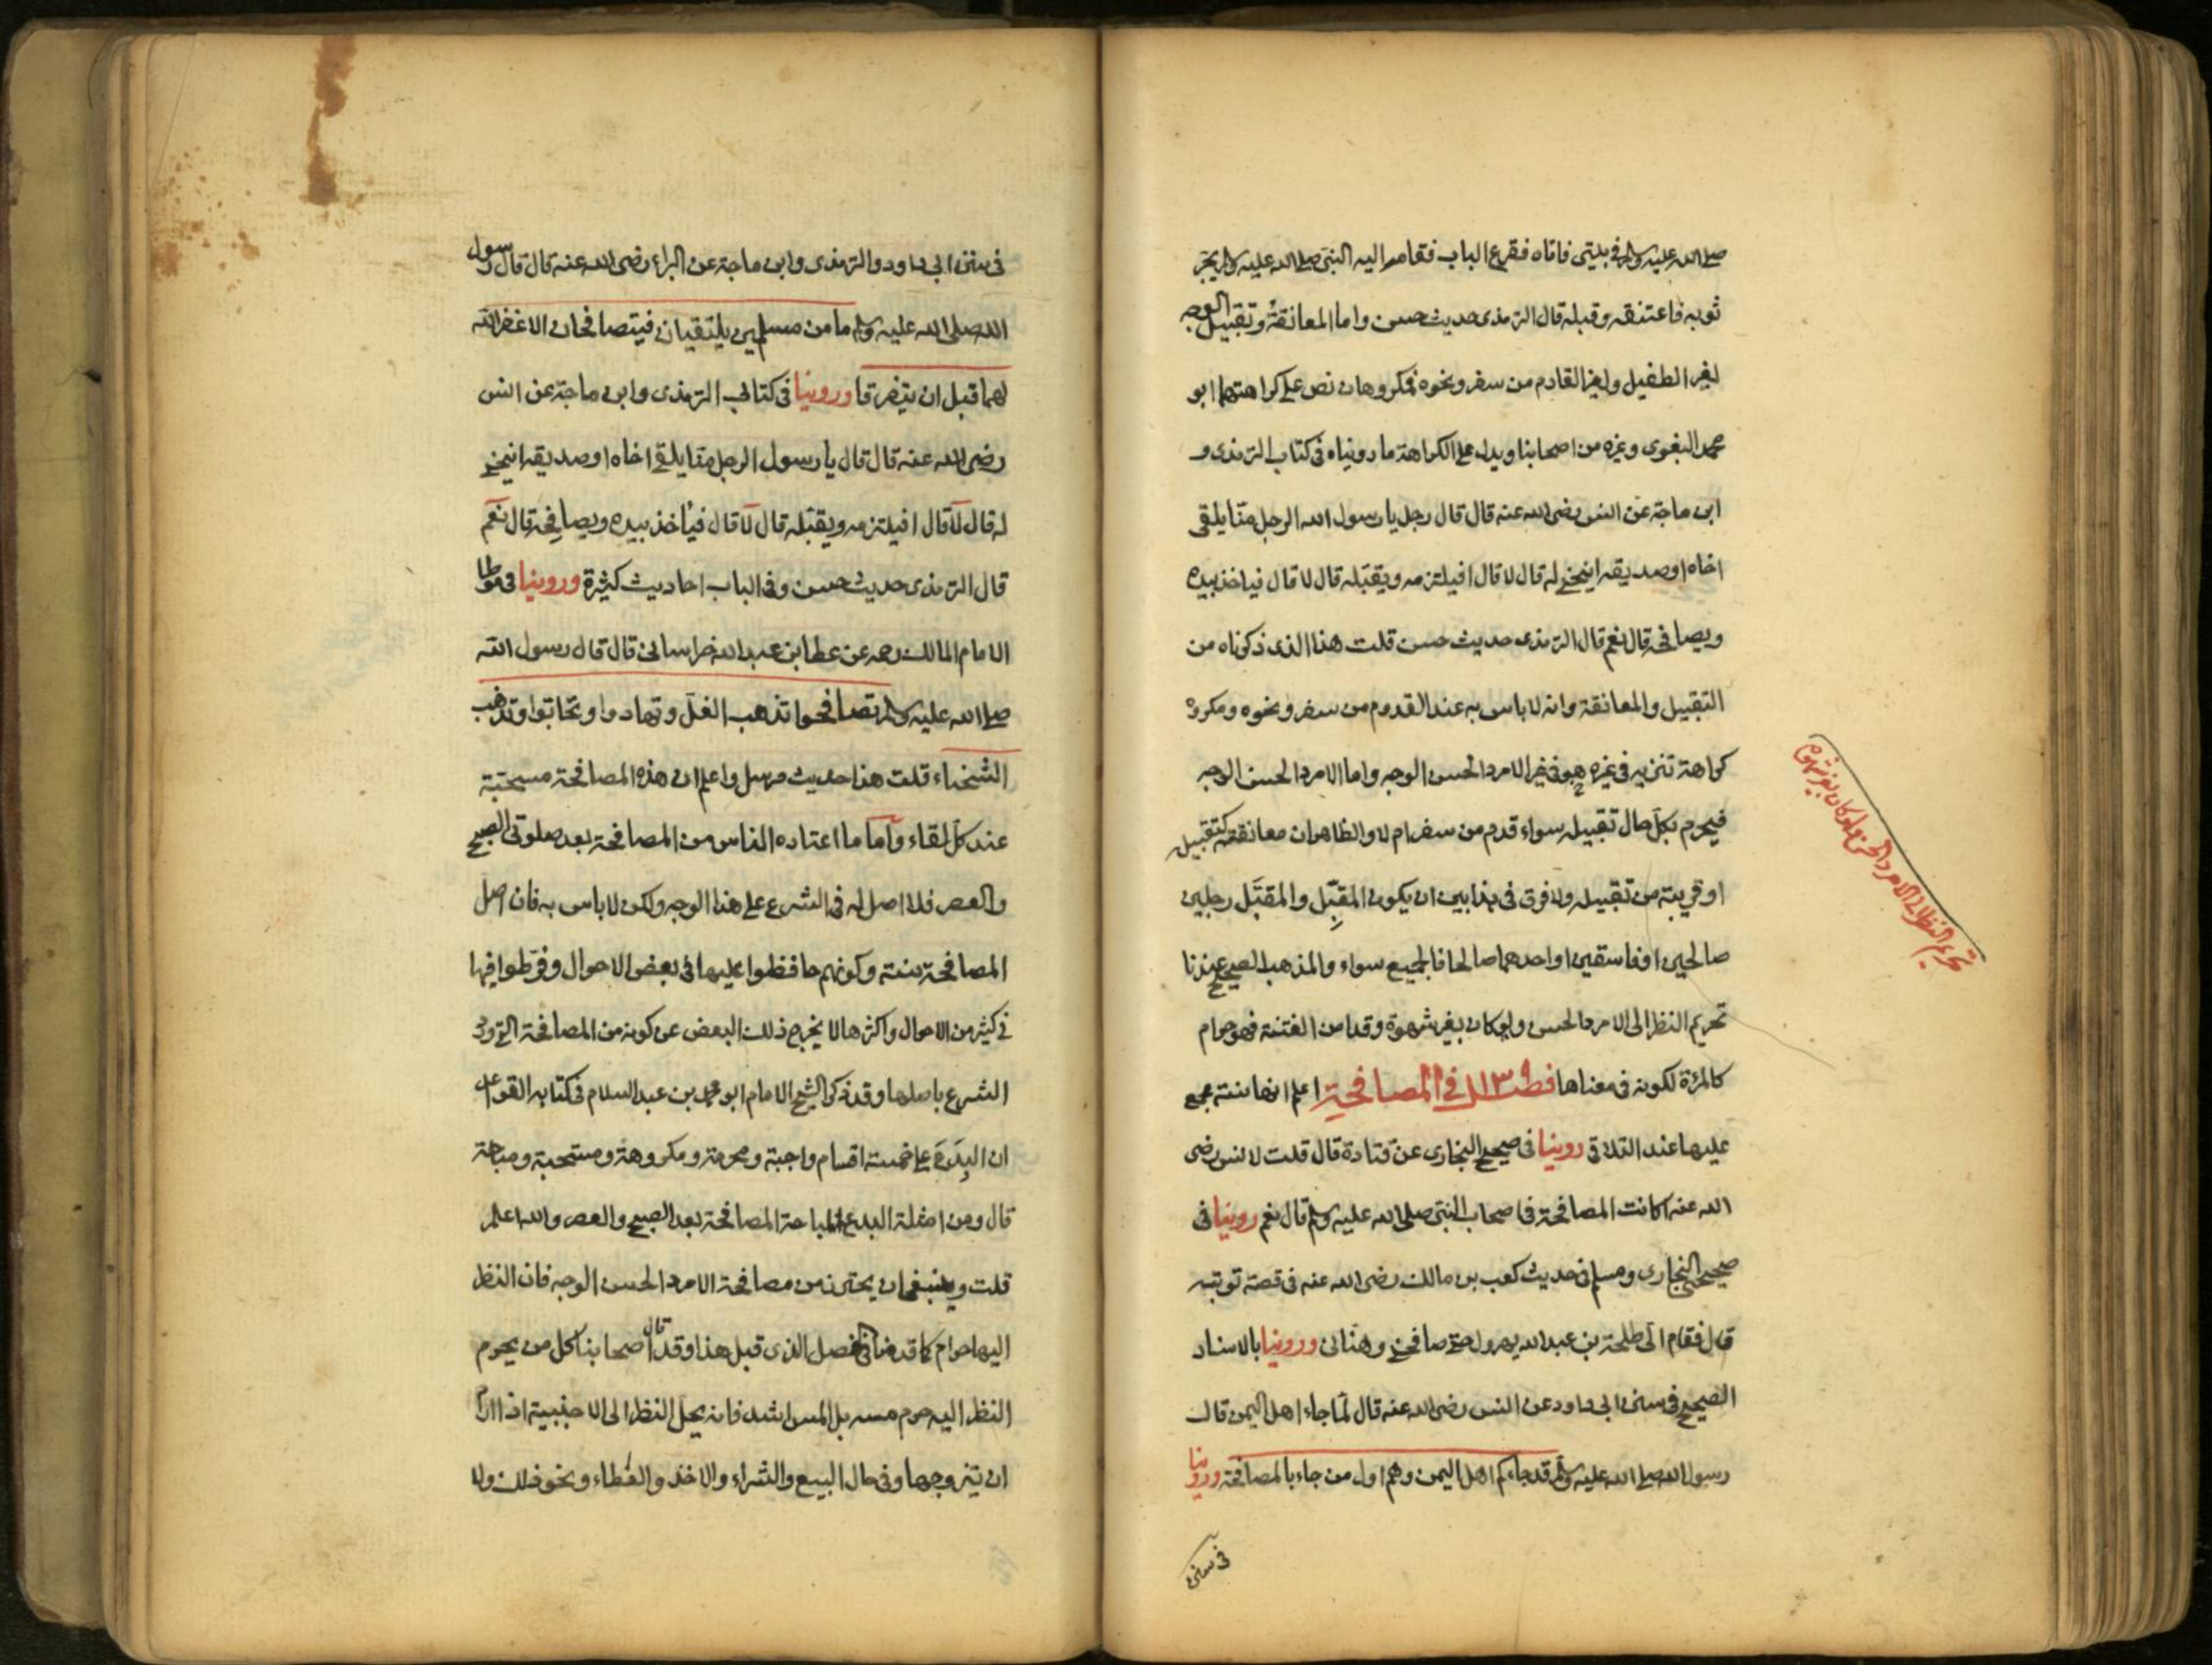 صلى الله عليه وسلم في بيتي فاتاه فقرع الباب فقام اليه النبي صلى الله عليه وسلم يجر
ثوبه فاعتنقه وقبله قال الترمذى حديث حسن واما المعانقة وتقبيل الوجه
لغير الطفيل ولغير القادم من سفر ونحوه فمكروهان نص على كراهتهما ابو
محمد البغوى وغيره من اصحابنا ويدل على الكراهة ما روينا
ه فى كتاب الترمذى و
ابن ماجة عن انس رضى الله عنه قال قال رجل يا رسول الله الرجل منا يلقى
اخاه او صديقه اينحنى له قال لا قال افيلتزمه ويقبّله قال لا قال فياخذ بيده
ويصافحه قال نعم قال الترمذى حديث حسن قلت هذا الذى ذكرناه من
التقبيل والمعانقة وانه لا باس به عند القدوم من سفر ونحوه ومكروه
كراهة تنزيه فى غيره هو فى غير الامرد الحسن الوجه واما الامرد الحسن الوجه
فيحرم بكل حال تقبيله سواء قدم من سفر ام لا والظاهر ان معانقته كتقبيله
او قريبة من تقبيله ولا فرق فى هذا بين ان يكون المقبِّل والمقبَّل رجلين
صالحين او فاسقين او احدهما صالحا فالجميع سواء والمذهب الصحيح عندنا
تحريم النظر الى الامرد الحسن ولو كان بغير شهوة وقد امن الفتنة فهو حرام
كالمرءة لكونه فى معناها فصل فى المصافحة اعلم انها سنة مجمع
عليها عند التلاقى روينا فى صحيح البخارى عن قتادة قال قلت لانس رضى
الله عنه اكانت المصافحة فى اصحاب النبى صلى الله عليه وسلم قال نعم روينا فى
صحيحى البخارى ومسلم فى حديث كعب بن مالك رضى الله عنه فى قصة توبته
قال فقام الى طلحة بن عبد الله يهرول حتى صافحنى وهنانى وروينا بالاسناد
الصحيح فى سنن ابى داود عن انس رضى الله عنه قال لما جاء اهل اليمن قال
رسول الله صلى الله عليه وسلم قد جاءكم اهل اليمن وهم اول من جاء بالمصافحة وروينا
فى سنن
تحريم النظر الى الامرد الحسن ولو كان بغير شهوة
فى سنن ابى داود والترمذى وابن ماجة عن البراء رضى الله عنه قال قال رسول
الله صلى الله عليه وسلم ما من مسلمين يلتقيان فيتصافحان الا غفر الله
لهما قبل ان يتفرقا وروينا فى كتابى الترمذى وابن ماجة عن انس
رضى الله عنه قال قال يا رسول الرجل منا يلقى اخاه او صديقه اينحنى
له قال لا قال افيلتزمه ويقبّله قال لا قال فياخذ بيده ويصافحه قال نعم
قال الترمذى حديث حسن وفى الباب احاديث كثيرة وروينا فى موطا
الامام المالك رحمه عن عطا بن عبد الله خراسانى قال قال رسول الله
صلى الله عليه وسلم تصافحوا تذهب الغل وتهادوا وتحابوا وتذهب
الشحناء قلت هذا حديث مرسل واعلم ان هذه المصافحة مستحبة
عند كل لقاء واما ما اعتاده الناس من المصافحة بعد صلوتى الصبح
والعصر فلا اصل له فى الشرع على هذا الوجه ولكن لا باس به فان اصل
المصافحة سنة وكونهم حافظوا عليها فى بعض الاحوال وفرّطوا فيها
فى كثير من الاحوال واكثرها لا يخرج ذلك البعض عن كونه من المصافحة التى ورد
الشرع باصلها وقد ذكر الشيخ الامام ابو محمد بن عبد السلام فى كتابه القواعد
ان البدع على خمسة اقسام واجبة ومحرمة ومكروهة ومستحبة ومباحة
قال ومن امثلة البدع المباحة المصافحة بعد الصبح والعصر والله اعلم
قلت وينبغى ان يحترز من مصافحة الامرد الحسن الوجه فان النظر
اليها حرام كما قدمنا فى الفصل الذى قبل هذا وقد قال اصحابنا كل من يحرم
النظر اليه حرم مسه بل المس اشد فانه يحل النظر الى الاجنبية اذا اراد
ان يتزوجها وفى حال البيع والشراء والاخذ والعطاء ونحو ذلك ولا